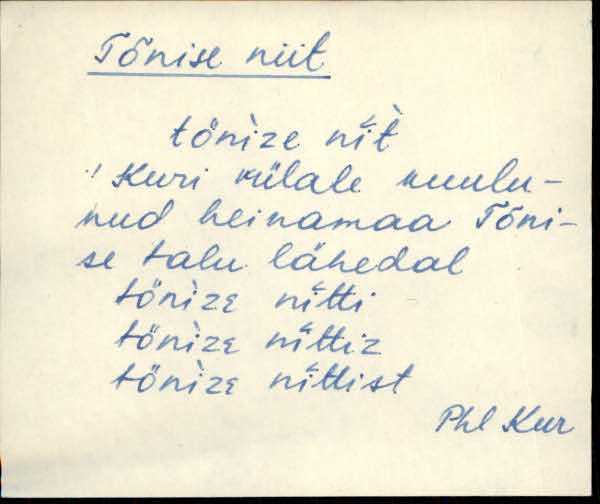 Tõnise niit
töǹize nììt
! Kuri külale kuulu-
nud heinamaa Tõni-
se talu lähedal
töǹize nìtti
töǹize nìttiz
töǹize nìttist
Phl Kur